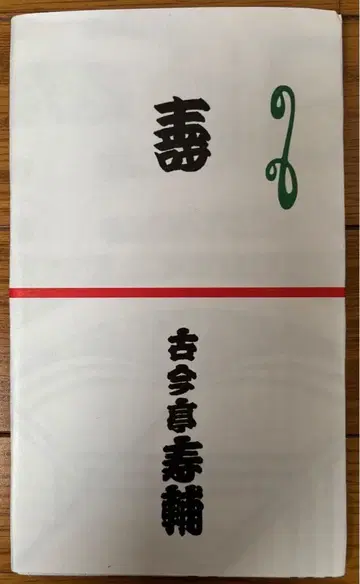 壽
古今亭寿輔